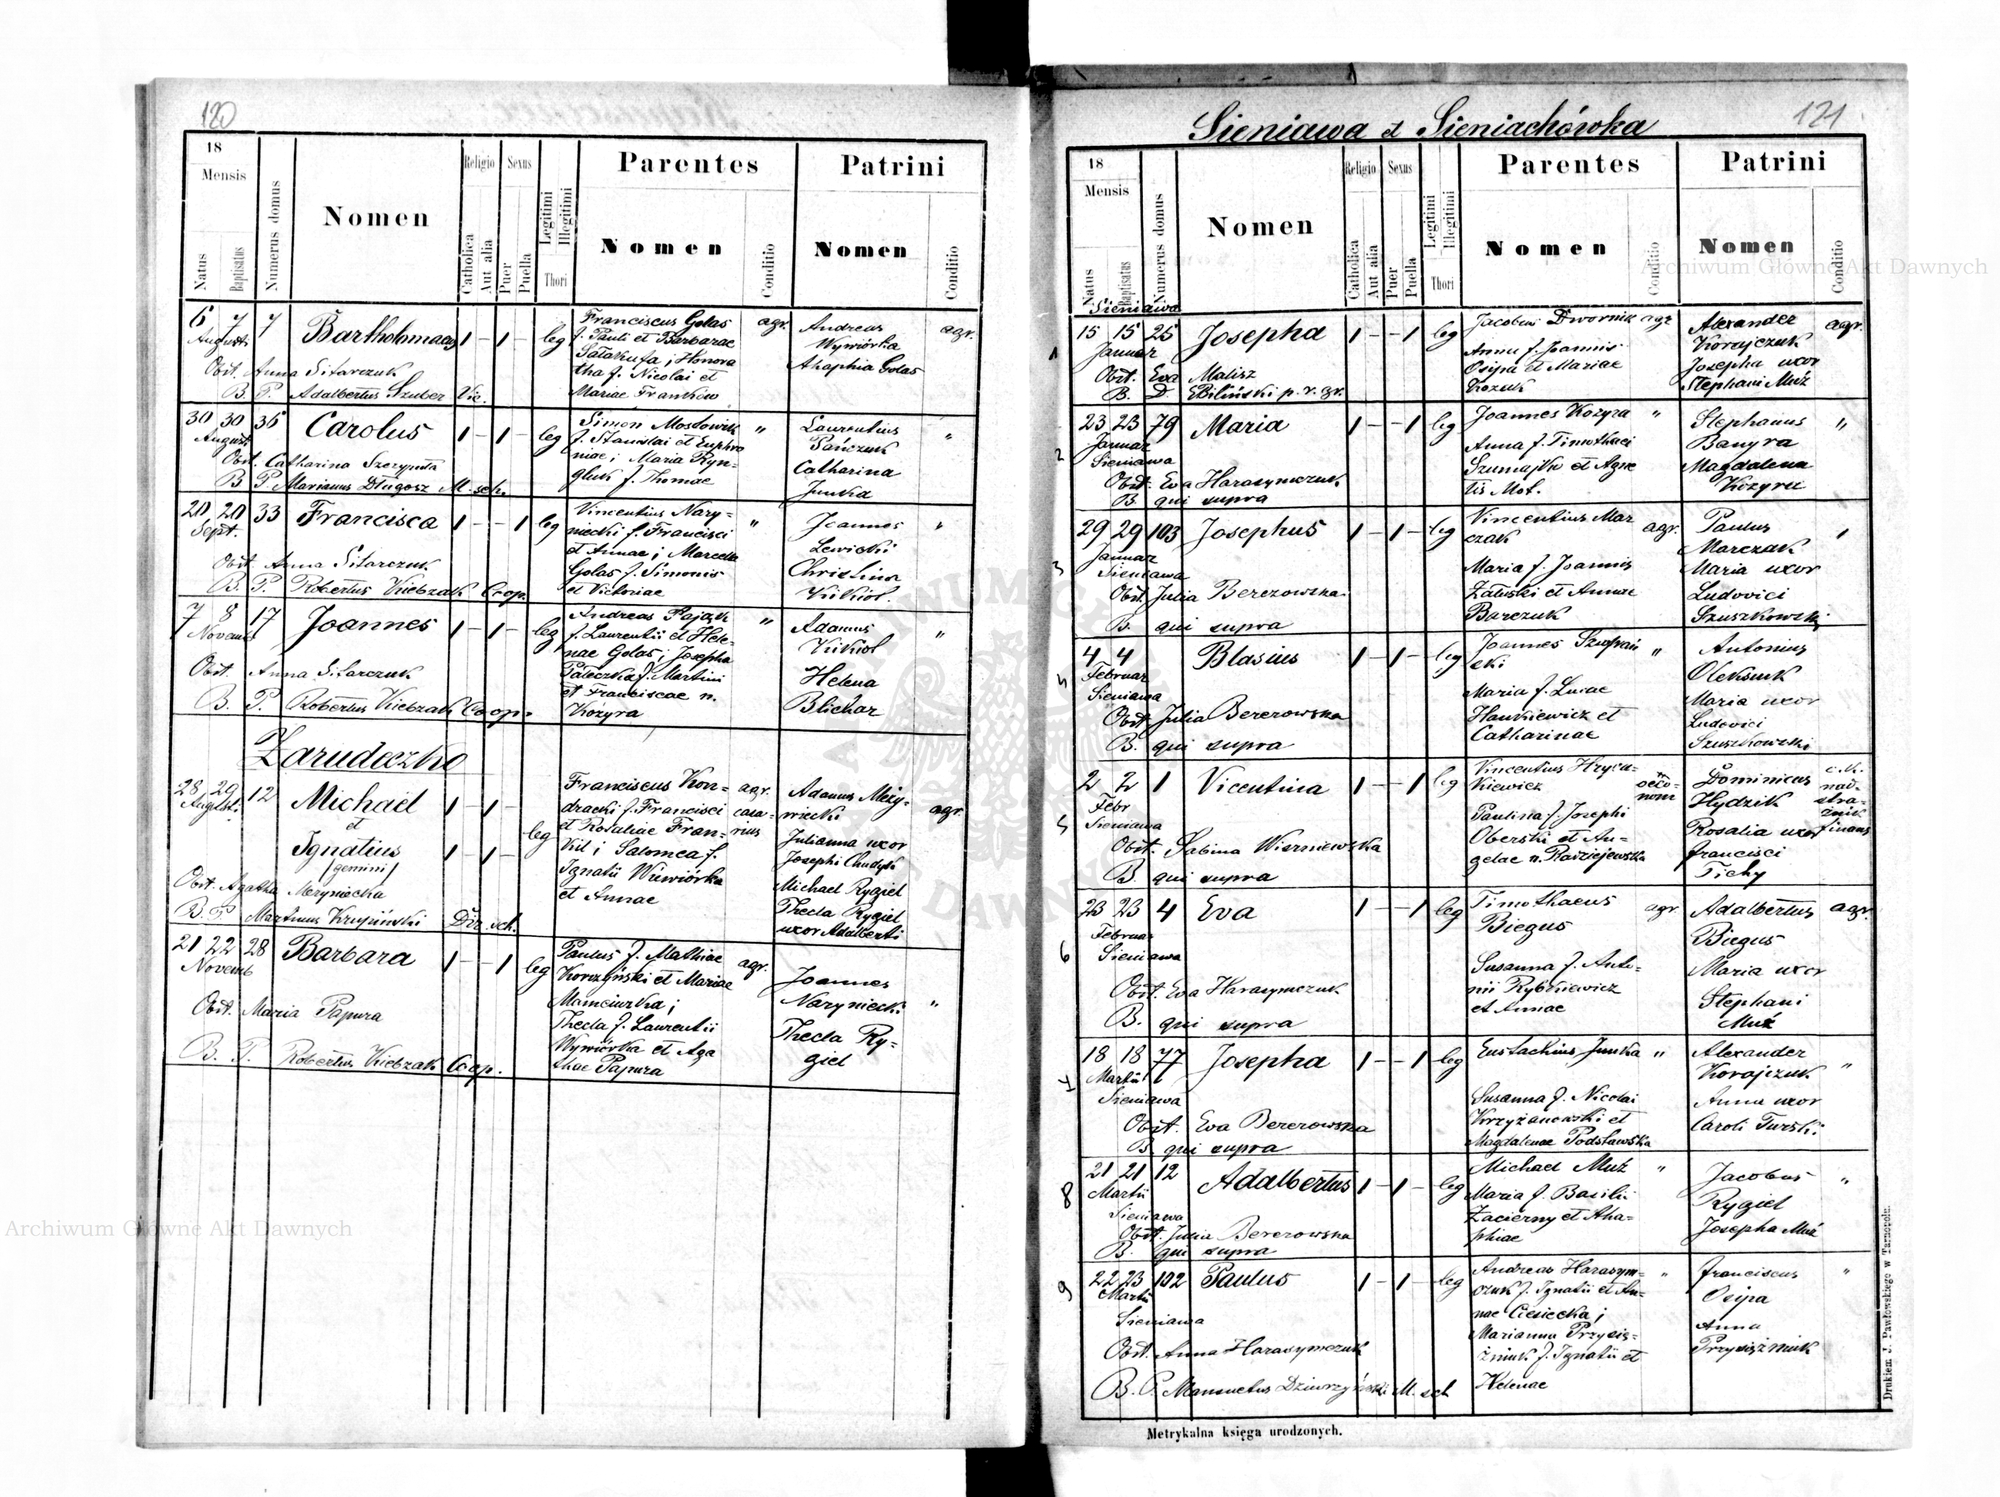 120
18
Mensis
Natus
Baptisatus
Numerus domus
Nomen
Religio
Catholica
Aut alia
Sexus
Puer
Puella
Legitimi
Illegitimi
Thori
Parentes
Nomen
Conditio
Patrini
Nomen
Conditio
6 7 7 Bartholomaeus 1 – 1 – leg
August
Franciscus Golas agr.
f. Pauli et Barbarae
Honora
tha f. Nicolai et
Mariae Franków
Andreas agr.
Wywiórka
Ahaphia Golas
Obst. Anna Sitarczuk
B. P. Adalbertus Szuber Vic.
30 30 36 Carolus 1 – 1 – leg
August
Simon Mosdowik "
f. Stanislai et Euphro
niae; Maria Ryn-
gluk f. Thomae
Laurentius "
Pańczuk
Catharina
Junka
Obst. Catharina Szezypuła
B P. Marianus Długosz M. sch.
20 20 33 Francisca 1 – – 1 leg
Sept.
Vincentius Nary- "
niecki f. Francisci
et Annae; Marcella
Golas f. Simonis
et Victoriae
Joannes "
Lewicki
Christina
Kikiol.
Obst. Anna Sitarczuk
B. P. Robertus Kiebzak Coop.
7 8 17 Joannes 1 – 1 – leg
Novemb
Andreas Pająk "
f. Laurentii et Hele-
nae Golas; Josepha
Pałeczka f. Martini
et Franciscae n.
Kozyra
Adamus "
Kikiol
Helena
Blichar
Obst. Anna Sitarczuk
B. P. Robertus Kiebzak Coop.
Zarudeczko
28 29 12 Michael 1 – 1 –
August.
et
Ignatius 1 – 1 – leg
/gemini/
Franciscus Kon- agr.
dracki f. Francisci casa-
et Rosaliae Fran- rius
kil; Salomea f.
Ignatii Wiewiórka
et Annae
Adamus Mezy- agr.
wiecki
Julianna uxor
Josephi Chudyk
Michael Rygiel
Thecla Rygiel
uxor Adalberti
Obst. Agatha Mezyniecka
B. P. Martinus Krupiński Dir. sch.
21 22 28 Barbara 1 – – 1 leg
Novemb
Paulus f. Mathiae agr.
Korczyński et Mariae
Mainciurka;
Thecla f. Laurentii
Wywiórka et Aga
thae Papura
Joannes
Naryniecki "
Thecla Ry-
giel
Obst. Maria Papura
B. P. Robertus Kiebzak Coop.
Sieniawa et Sieniachówka
121
18
Mensis
Natus
Baptisatus
Numerus domus
Nomen
Religio
Catholica
Aut alia
Sexus
Puer
Puella
Legitimi
Illegitimi
Thori
Parentes
Nomen
Conditio
Patrini
Nomen
Conditio
Sieniawa
1 15 15 25 Josepha 1 – – 1 leg
Januar
Jacobus Dwornik agr
Anna f. Joannis
Osipa et Mariae
Kozuk
Alexander agr.
Korajczuk
Josepha uxor
Stephani Muź
Obst. Eva Malisz
B. D. EBiliński p. r. gr.
2 23 23 79 Maria 1 – – 1 leg
Januar
Sieniawa
Joannes Kozyra "
Anna f. Timothaei
Szumajka et Agne
tis Mot.
Stephanus "
Banyra
Magdalena
Kozyra
Obst. Eva Harasymczuk
B. qui supra
3 29 29 103 Josephus 1 – 1 – leg
Januar
Sieniawa
Vincentius Mar agr.
czak
Maria f. Joannis
Załuski et Annae
Barczuk
Paulus "
Marczak
Maria uxor
Ludovici
Szuszkowski
Obst. Julia Berezowska
B. qui supra
4 4 4 Blasius 1 – 1 – leg
Februar
Sieniawa
Joannes Szopań "
cki
Maria f. Lucae
Hankiewicz et
Catharinae
Antonius
Oleksiuk
Maria uxor
Ludovici
Szuszkowski
Obst. Julia Berezowska
B. qui supra
5 2 2 1 Vicentina 1 – – 1 leg
Febr
Sieniawa
Vincentius Hrycu-
kiewicz oeco-
nom
Paulina f. Josephi
Oberski et An-
gelae n. Radziejewska
Dominicus c. k.
Hydzik nad-
stra-
żnik
finans
Rosalia uxor
Francisci
Tichy
Obst. Sabina Wiszniewska
B. qui supra
6 23 23 4 Eva 1 – – 1 leg
Februar
Sieniawa
Timothaeus agr.
Biegus
Susanna f. Anto-
nii Rybkiewicz
et Annae
Adalbertus agr.
Biegus
Maria uxor
Stephani
Muź
Obst. Eva Harasymczuk
B. qui supra
7 18 18 77 Josepha 1 – – 1 leg
Martii
Sieniawa
Eustachius Junka "
Susanna f. Nicolai
Krzyżanowski et
Magdalenae Podsławska
Alexander
Korajczuk "
Anna uxor
Caroli Turski
Obst. Eva Berezowska
B. qui supra
8 21 21 12 Adalbertus 1 – 1 – leg
Martii
Sieniawa
Michael Muź "
Maria f. Basilii
Zacierny et Aha-
phiae
Jacobus "
Rygiel
Josepha Muź
Obst. Julia Berezowska
B. qui supra
9 22 23 102 Paulus 1 – 1 – leg
Martii
Sieniawa
Andreas Harasym- "
czuk f. Ignatii et An-
nae Ciesiecka;
Marianna Przysię-
żniuk f. Ignatii et
Helenae
Franciscus "
Osipa
Anna
Przysiężniuk
Obst. Anna Harasymczuk
B. P. Mansuetus Dziurzyński M. sch
Metrykalna księga urodzonych.
Drukiem J. Pawłowskiego w Tarnopolu.
Archiwum Główne Akt Dawnych
Archiwum Główne Akt Dawnych